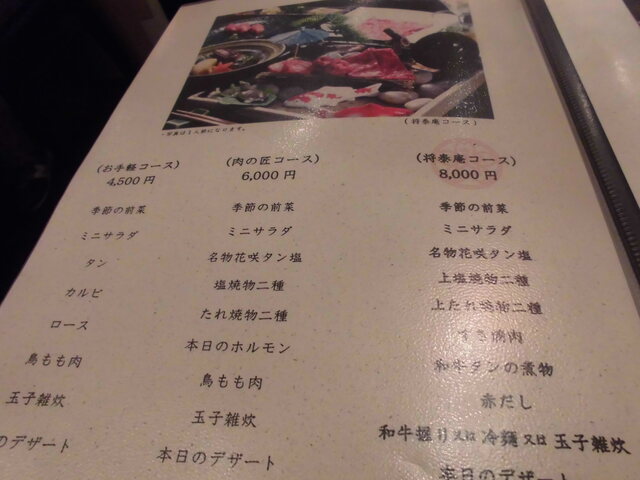 ・写真は1人前になります。
(将泰庵コース)
(お手軽コース)
4,500 円
季節の前菜
ミニサラダ
タン
カルビ
ロース
鳥もも肉
玉子雑炊
のデザート
(肉の匠コース)
6,000 円
季節の前菜
ミニサラダ
名物花咲タン塩
塩焼物二種
たれ焼物二種
本日のホルモン
鳥もも肉
玉子雑炊
本日のデザート
(将泰庵コース)
8,000 円
季節の前菜
ミニサラダ
名物花咲タン塩
上塩焼物二種
上たれ焼物二種
すき焼肉
和牛タンの煮物
赤だし
和牛握り又は冷麺又は玉子雑炊
本日のデザート